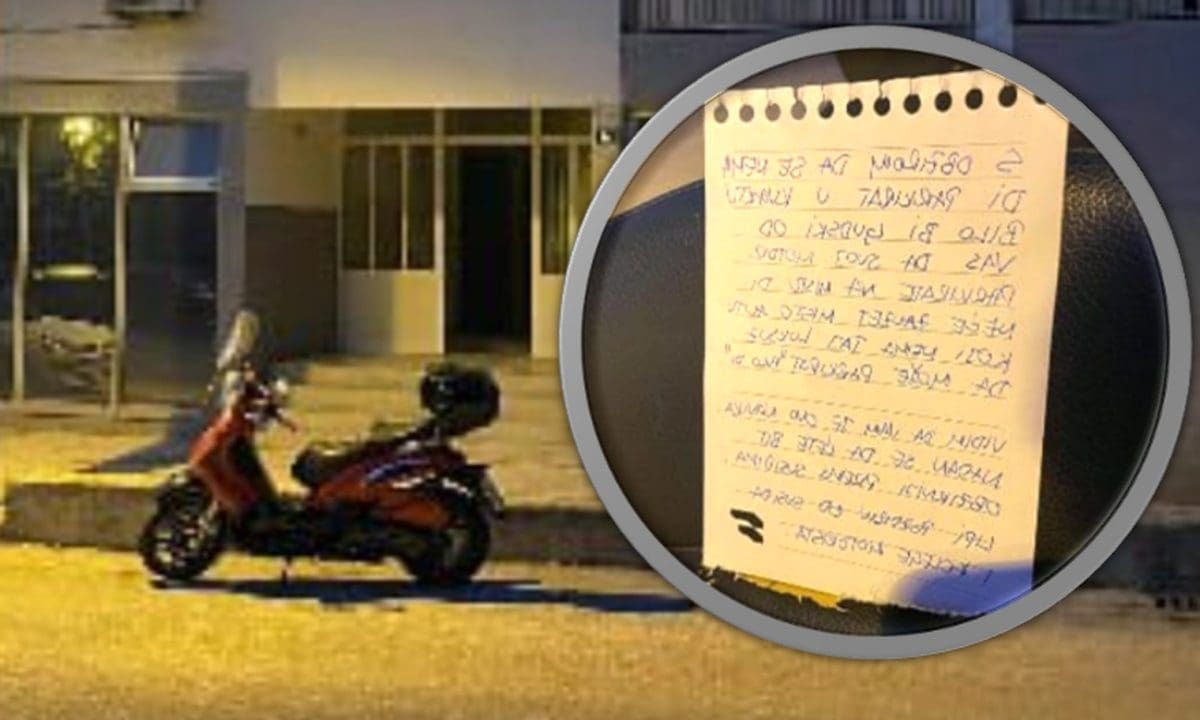 S OBZIROM DA SE NEMA
DI PARKIRAT U KVARTU
BILO BI LJUDSKI OD
VAS DA SVOJ MOTOR
PARKIRATE NA DI
NEĆE ZAUZET AUTU
KOJI NEMA TAJ LUKSUZ
DA MOŽE PARKIRAT
VIDIM DA VAM JE OVO NAVIKA
NADAM SE DA ĆETE BIT
OBZIRNIJI PREMA SUSIDIMA
LIPI POZDRAV OD SUSIDA
I KOLEGE MOTORISTA